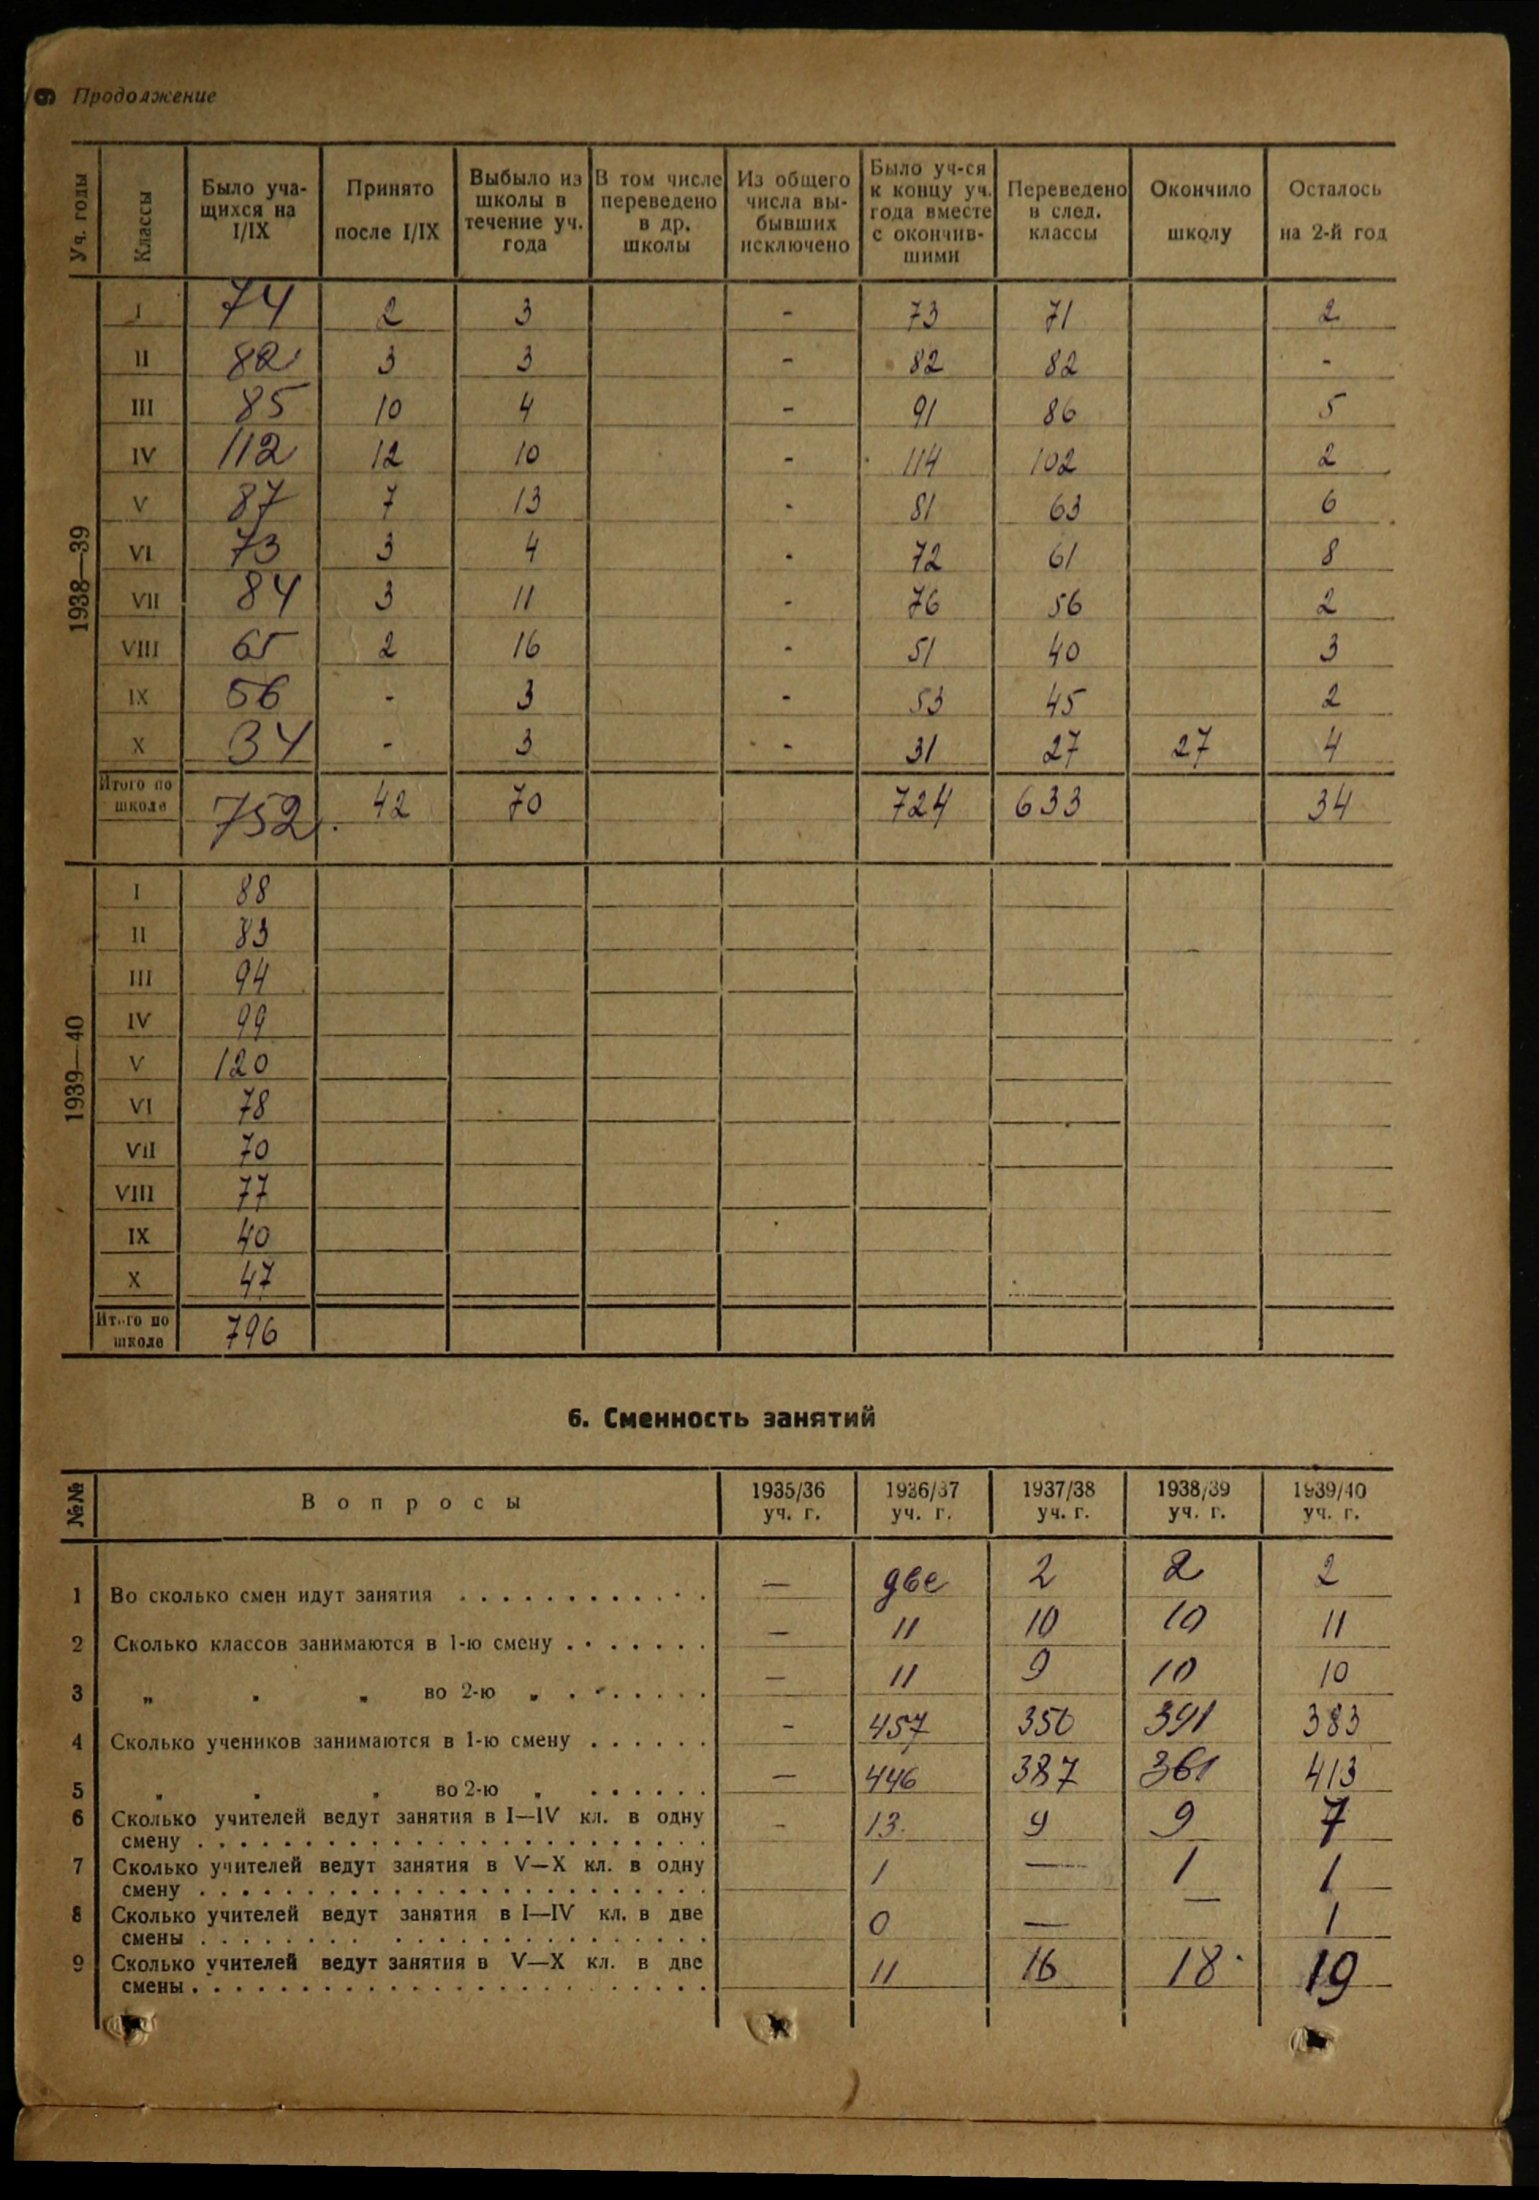 6 Продолжение
Уч. годы | Классы | Было уча-щихся на I/IX | Принято после I/IX | Выбыло из школы в течение уч. года | В том числе переведено в др. школы | Из общего числа вы-бывших исключено | Было уч-ся к концу уч. года вместе с окончив-шими | Переведено в след. классы | Окончило школу | Осталось на 2-й год
1938—39
I 74 2 3 - 73 71 2
II 82 3 3 - 82 82 -
III 85 10 4 - 91 86 5
IV 112 12 10 - 114 102 2
V 87 7 13 - 81 63 6
VI 73 3 4 - 72 61 8
VII 84 3 11 - 76 56 2
VIII 65 2 16 - 51 40 3
IX 56 - 3 - 53 45 2
X 34 - 3 - 31 27 27 4
Итого по школе 752 42 70 724 633 34
1939—40
I 88
II 83
III 94
IV 99
V 120
VI 78
VII 70
VIII 77
IX 40
X 47
Итого по школе 796
6. Сменность занятий
№№ | Вопросы | 1935/36 уч. г. | 1936/37 уч. г. | 1937/38 уч. г. | 1938/39 уч. г. | 1939/40 уч. г.
1 Во сколько смен идут занятия . . . . . . . . . . . . — две 2 2 2
2 Сколько классов занимаются в 1-ю смену . . . . . . . — 11 10 10 11
3 „ „ „ во 2-ю „ . . . . . . . — 11 9 10 10
4 Сколько учеников занимаются в 1-ю смену . . . . . . - 457 350 391 383
5 „ „ „ во 2-ю „ . . . . . . — 446 387 361 413
6 Сколько учителей ведут занятия в I—IV кл. в одну
смену . . . . . . . . . . . . . . . . . . . . . . - 13 9 9 7
7 Сколько учителей ведут занятия в V—X кл. в одну
смену . . . . . . . . . . . . . . . . . . . . . . 1 — 1 1
8 Сколько учителей ведут занятия в I—IV кл. в две
смены . . . . . . . . . . . . . . . . . . . . . . 0 — — 1
9 Сколько учителей ведут занятия в V—X кл. в две
смены . . . . . . . . . . . . . . . . . . . . . . 11 16 18 19